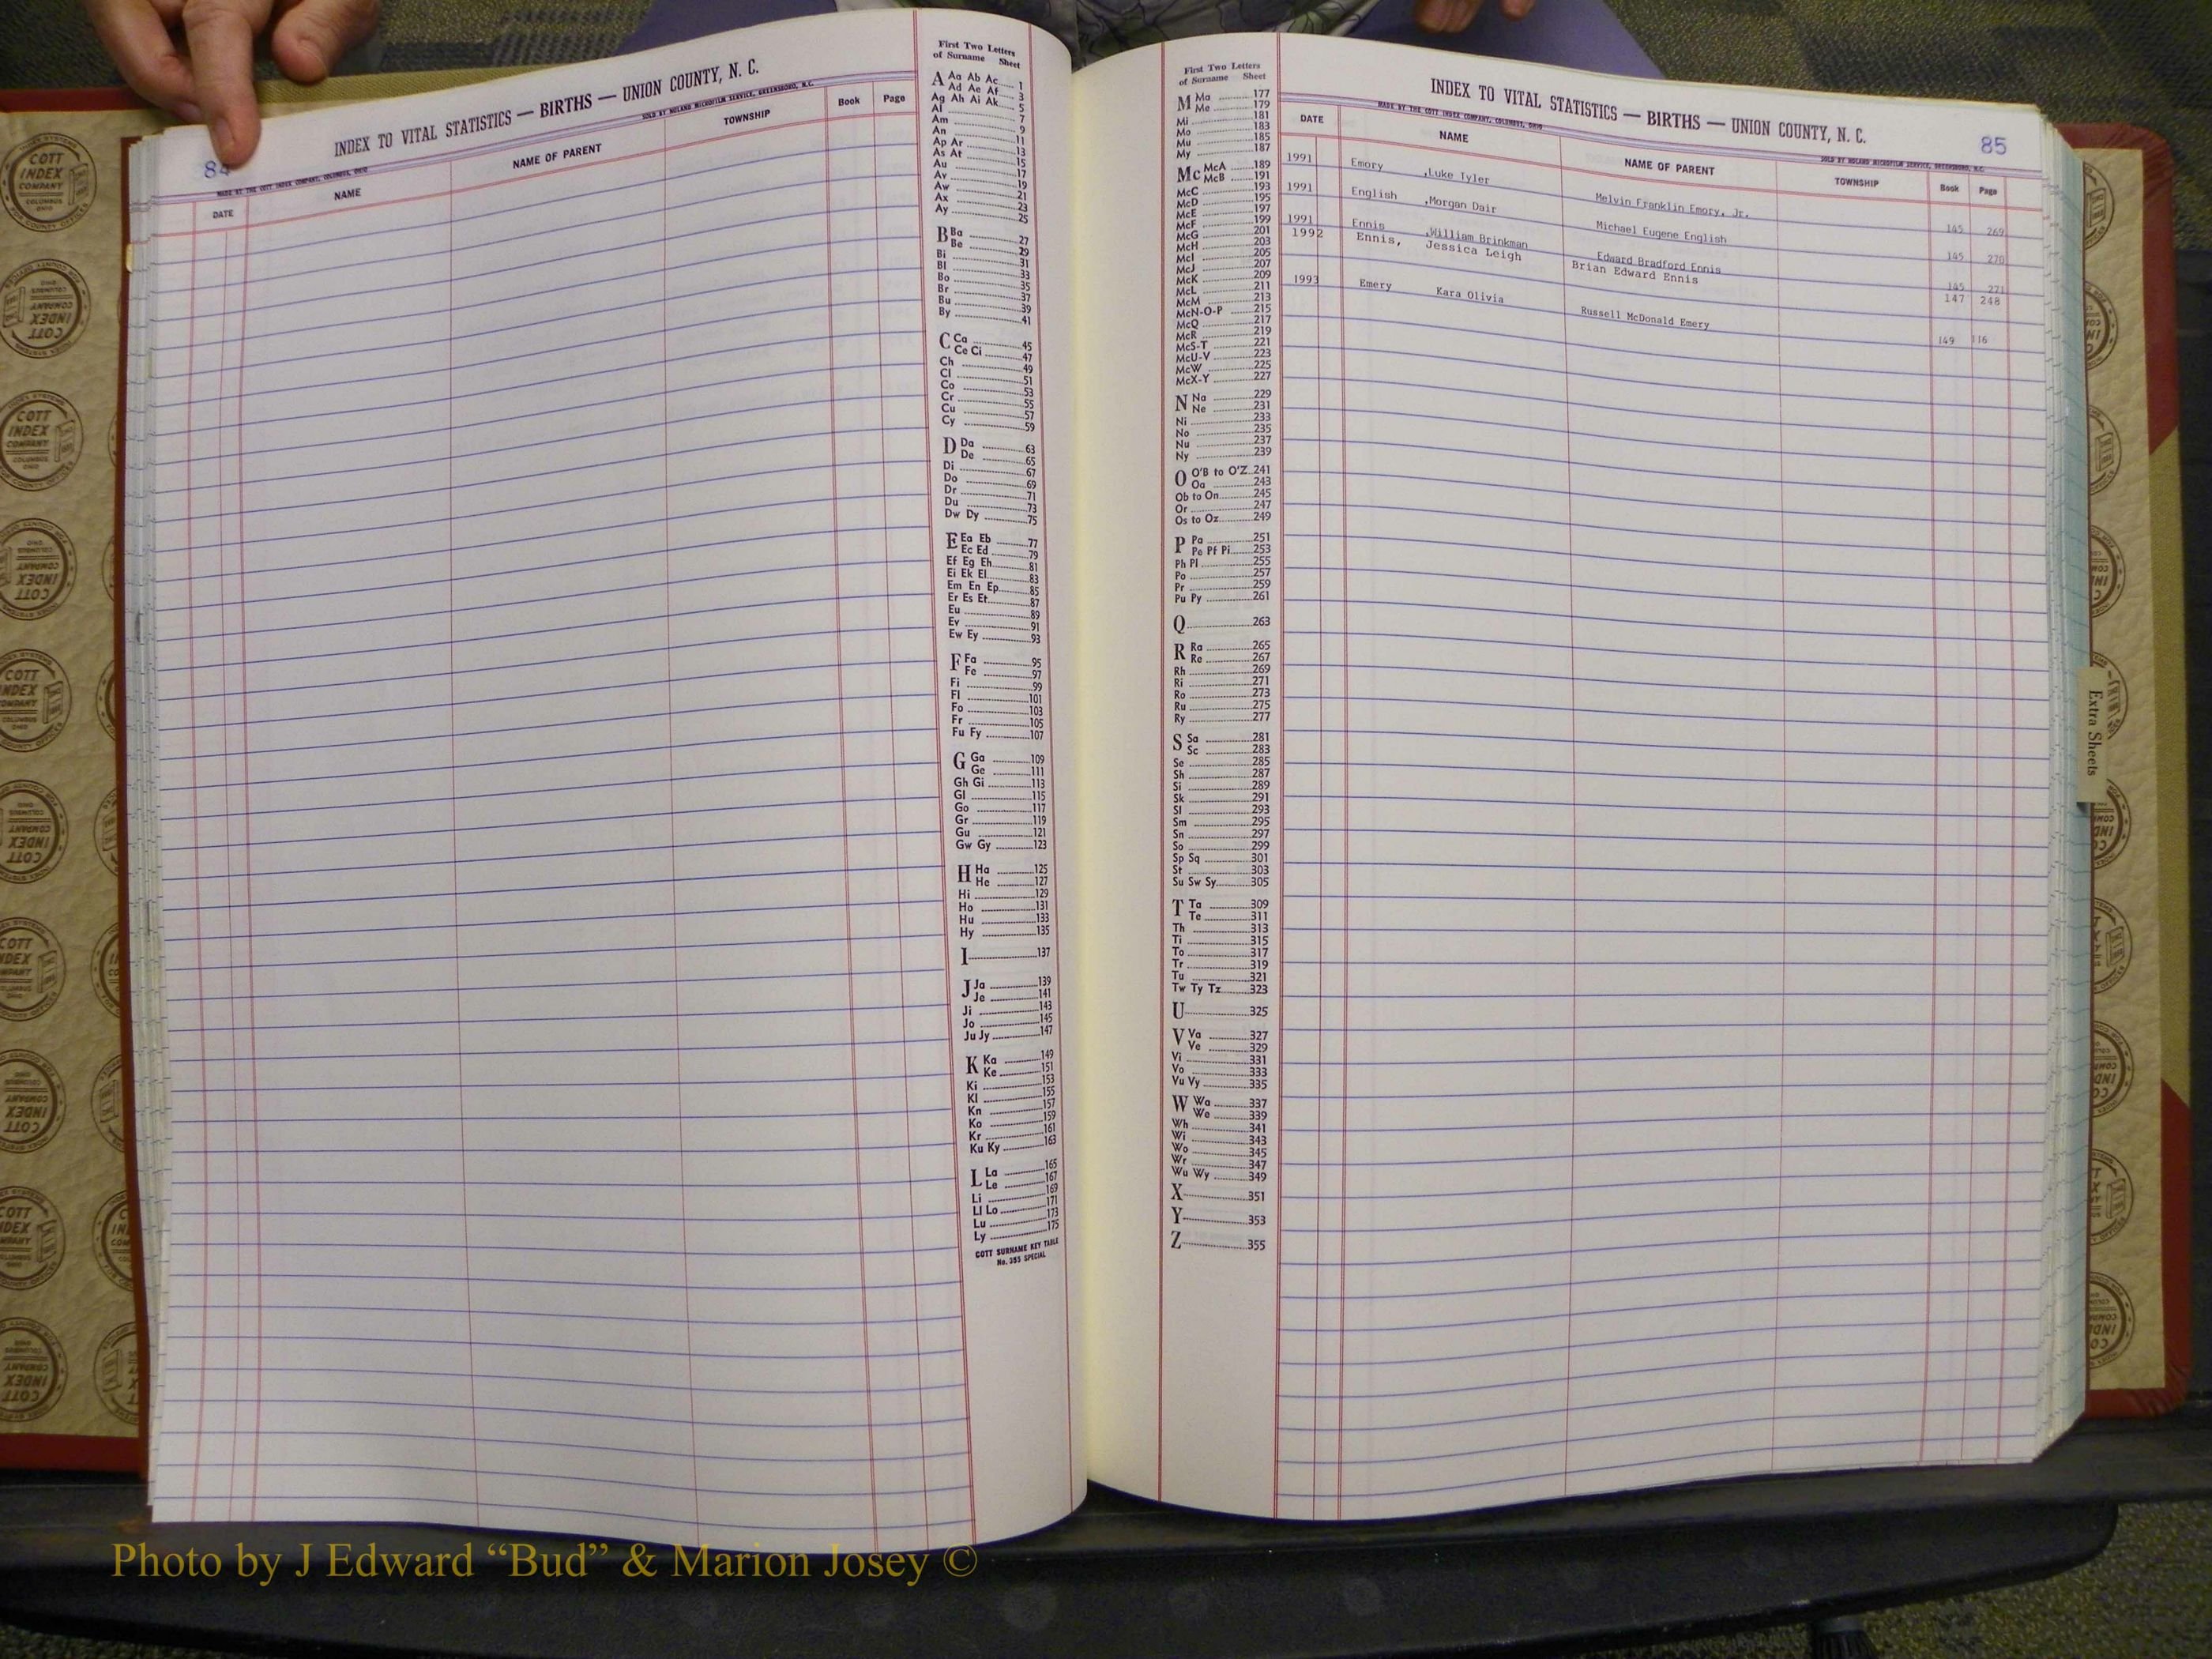 84
INDEX TO VITAL STATISTICS — BIRTHS — UNION COUNTY, N. C.
MADE BY THE COTT INDEX COMPANY, COLUMBUS, OHIO
SOLD BY NOLAND MICROFILM SERVICE, GREENSBORO, N.C.
DATE NAME NAME OF PARENT TOWNSHIP Book Page
First Two Letters
of Surname Sheet
A Aa Ab Ac 1
Ad Ae Af 3
Ag Ah Ai Ak 5
Al 7
Am 9
An 11
Ap Ar 13
As At 15
Au 17
Av 19
Aw 21
Ax 23
Ay 25
B Ba 27
Be 29
Bi 31
Bl 33
Bo 35
Br 37
Bu 39
By 41
C Ca 45
Ce Ci 47
Ch 49
Cl 51
Co 53
Cr 55
Cu 57
Cy 59
D Da 63
De 65
Di 67
Do 69
Dr 71
Du 73
Dw Dy 75
E Ea Eb 77
Ec Ed 79
Ef Eg Eh 81
Ei Ek El 83
Em En Ep 85
Er Es Et 87
Eu 89
Ev 91
Ew Ey 93
F Fa 95
Fe 97
Fi 99
Fl 101
Fo 103
Fr 105
Fu Fy 107
G Ga 109
Ge 111
Gh Gi 113
Gl 115
Go 117
Gr 119
Gu 121
Gw Gy 123
H Ha 125
He 127
Hi 129
Ho 131
Hu 133
Hy 135
I 137
J Ja 139
Je 141
Ji 143
Jo 145
Ju Jy 147
K Ka 149
Ke 151
Ki 153
Kl 155
Kn 157
Ko 159
Kr 161
Ku Ky 163
L La 165
Le 167
Li 169
Ll Lo 171
Lu 173
Ly 175
COTT SURNAME KEY TABLE
No. 355 SPECIAL
First Two Letters
of Surname Sheet
M Ma 177
Me 179
Mi 181
Mo 183
Mu 185
My 187
Mc McA 189
McB 191
McC 193
McD 195
McE 197
McF 199
McG 201
McH 203
McI 205
McJ 207
McK 209
McL 211
McM 213
McN-O-P 215
McQ 217
McR 219
McS-T 221
McU-V 223
McW 225
McX-Y 227
N Na 229
Ne 231
Ni 233
No 235
Nu 237
Ny 239
O O'B to O'Z 241
Oa 243
Ob to On 245
Or 247
Os to Oz 249
P Pa 251
Pe Pf Pi 253
Ph Pl 255
Po 257
Pr 259
Pu Py 261
Q 263
R Ra 265
Re 267
Rh 269
Ri 271
Ro 273
Ru 275
Ry 277
S Sa 281
Sc 283
Se 285
Sh 287
Si 289
Sk 291
Sl 293
Sm 295
Sn 297
So 299
Sp Sq 301
St 303
Su Sw Sy 305
T Ta 309
Te 311
Th 313
Ti 315
To 317
Tr 319
Tu 321
Tw Ty Tz 323
U 325
V Va 327
Ve 329
Vi 331
Vo 333
Vu Vy 335
W Wa 337
We 339
Wh 341
Wi 343
Wo 345
Wr 347
Wu Wy 349
X 351
Y 353
Z 355
INDEX TO VITAL STATISTICS — BIRTHS — UNION COUNTY, N. C.
85
MADE BY THE COTT INDEX COMPANY, COLUMBUS, OHIO
SOLD BY NOLAND MICROFILM SERVICE, GREENSBORO, N.C.
DATE NAME NAME OF PARENT TOWNSHIP Book Page
1991 Emory ,Luke Tyler Melvin Franklin Emory, Jr. 145 269
1991 English ,Morgan Dair Michael Eugene English 145 270
1991 Ennis ,William Brinkman Edward Bradford Ennis 145 271
1992 Ennis, Jessica Leigh Brian Edward Ennis 147 248
1993 Emery Kara Olivia Russell McDonald Emery 149 116
Extra Sheets
COTT INDEX COMPANY COLUMBUS OHIO
Photo by J Edward “Bud” & Marion Josey ©